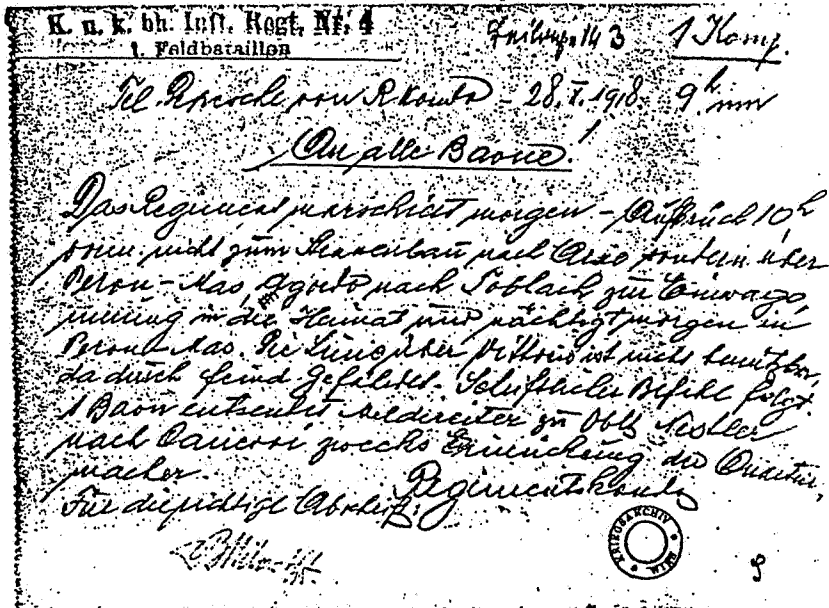 K. u. k. bh. Inft. Regt. Nr. 4 143 1 Komp.
1. Feldbataillon
Tel. von Rkomdo - 28. X. 1918 9h
An alle Baone!
Das Regiment marschiert morgen - Aufbruch 10h
vorm. nicht zum nach sondern über
Peron-Mas, Agordo nach Toblach zur Einwago,
nierung in die Heimat und nächtigt morgen in
Peron-Mas. Die Linie über Vittorio ist nicht benützbar,
da durch Feind gefährdet. Schriftlicher Befehl folgt.
1 Baon entsendet Meldereiter zu Oblt Nestler
nach zwecks der Quartier,
macher.
Regimentskomdo
Für die richtige Abschrift:
KRIEGSARCHIV WIEN